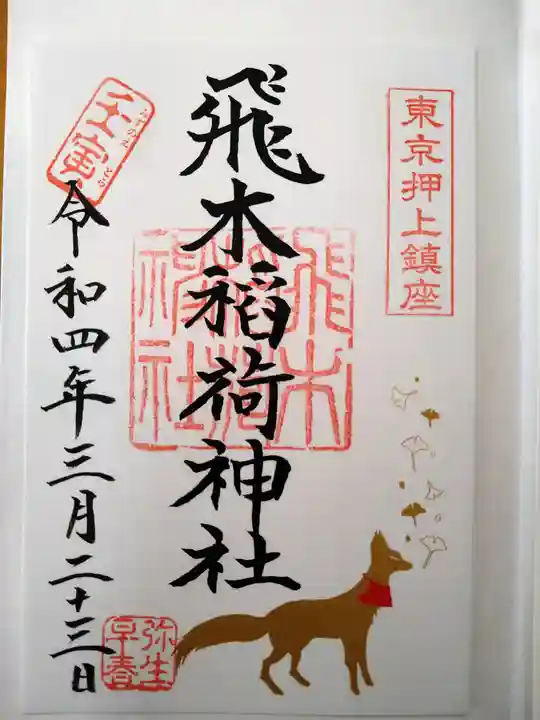 東京押上鎮座
飛木稲荷神社
飛木稲荷神社
壬寅
みずのえ とら
令和四年三月二十三日
弥生
早春